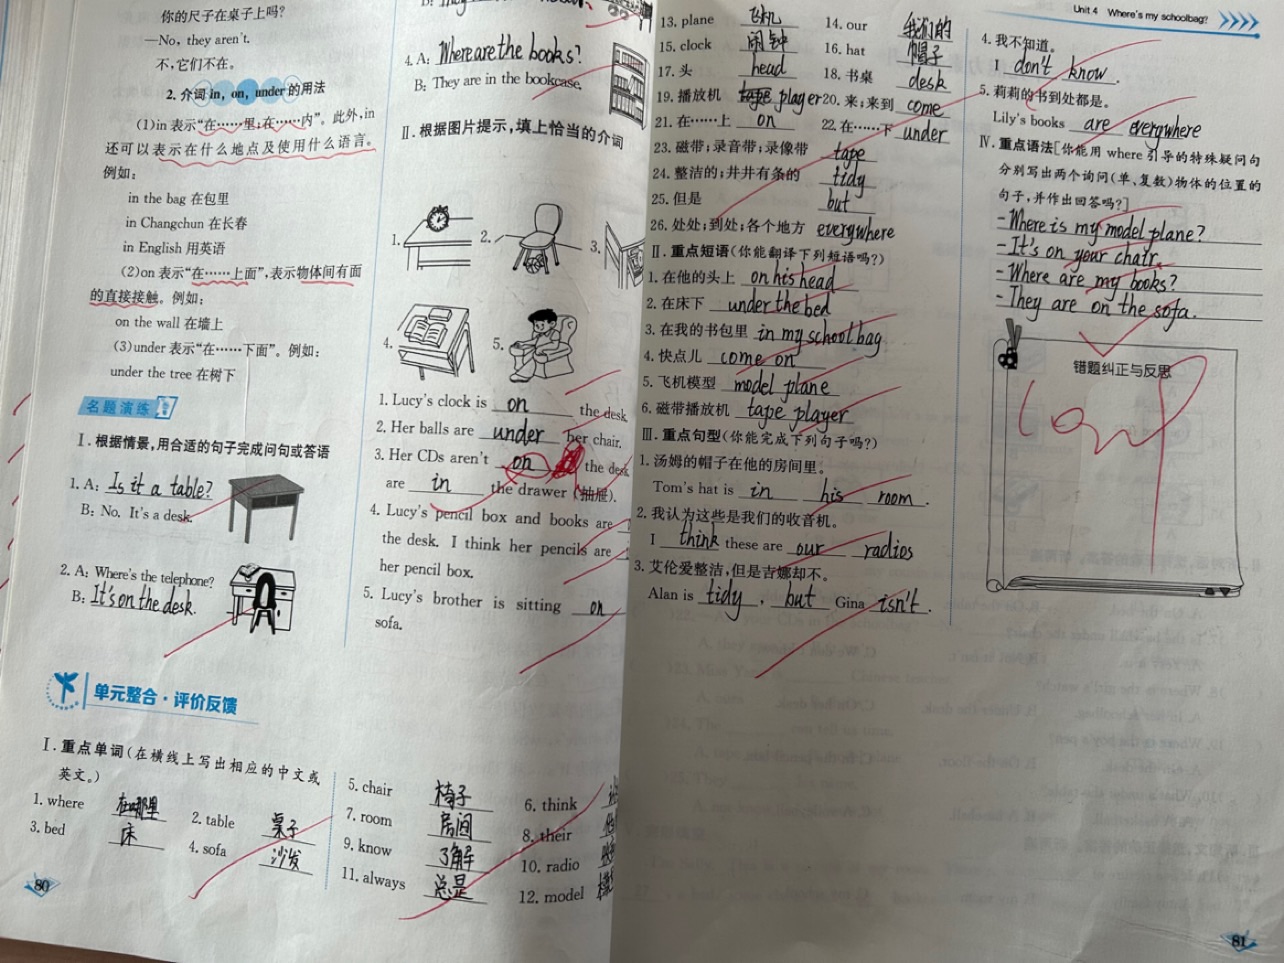 你的尺子在桌子上吗?
—No, they aren't.
不,它们不在。
2. 介词 in, on, under 的用法
(1)in 表示“在……里;在……内”。此外,in
还可以表示在什么地点及使用什么语言。
例如:
in the bag 在包里
in Changchun 在长春
in English 用英语
(2)on 表示“在……上面”,表示物体间有面
的直接接触。例如:
on the wall 在墙上
(3)under 表示“在……下面”。例如:
under the tree 在树下
名题演练
Ⅰ. 根据情景,用合适的句子完成问句或答语
1. A: Is it a table?
B: No. It's a desk.
2. A: Where's the telephone?
B: It's on the desk.
单元整合·评价反馈
Ⅰ. 重点单词(在横线上写出相应的中文或
英文。)
1. where 在哪里
2. table 桌子
3. bed 床
4. sofa 沙发
80
4. A: Where are the books?
B: They are in the bookcase.
Ⅱ. 根据图片提示,填上恰当的介词
1.
2.
3.
4.
5.
1. Lucy's clock is on the desk
2. Her balls are under her chair.
3. Her CDs aren't on the desk
are in the drawer (抽屉).
4. Lucy's pencil box and books are
the desk. I think her pencils are
her pencil box.
5. Lucy's brother is sitting on
sofa.
5. chair 椅子
6. think
7. room 房间
8. their
9. know 了解
10. radio
11. always 总是
12. model
13. plane 飞机
14. our 我们的
15. clock 闹钟
16. hat 帽子
17. 头 head
18. 书桌 desk
19. 播放机 player
20. 来;来到 come
21. 在……上 on
22. 在……下 under
23. 磁带;录音带;录像带 tape
24. 整洁的;井井有条的 tidy
25. 但是 but
26. 处处;到处;各个地方 everywhere
Ⅱ. 重点短语(你能翻译下列短语吗?)
1. 在他的头上 on his head
2. 在床下 under the bed
3. 在我的书包里 in my schoolbag
4. 快点儿 come on
5. 飞机模型 model plane
6. 磁带播放机 tape player
Ⅲ. 重点句型(你能完成下列句子吗?)
1. 汤姆的帽子在他的房间里。
Tom's hat is in his room .
2. 我认为这些是我们的收音机。
I think these are our radios
3. 艾伦爱整洁,但是吉娜却不。
Alan is tidy , but Gina isn't .
Unit 4 Where's my schoolbag?
4. 我不知道。
I don't know .
5. 莉莉的书到处都是。
Lily's books are everywhere
Ⅳ. 重点语法[你能用 where 引导的特殊疑问句
分别写出两个询问(单、复数)物体的位置的
句子,并作出回答吗?]
- Where is my model plane?
- It's on your chair.
- Where are my books?
- They are on the sofa.
错题纠正与反思
81